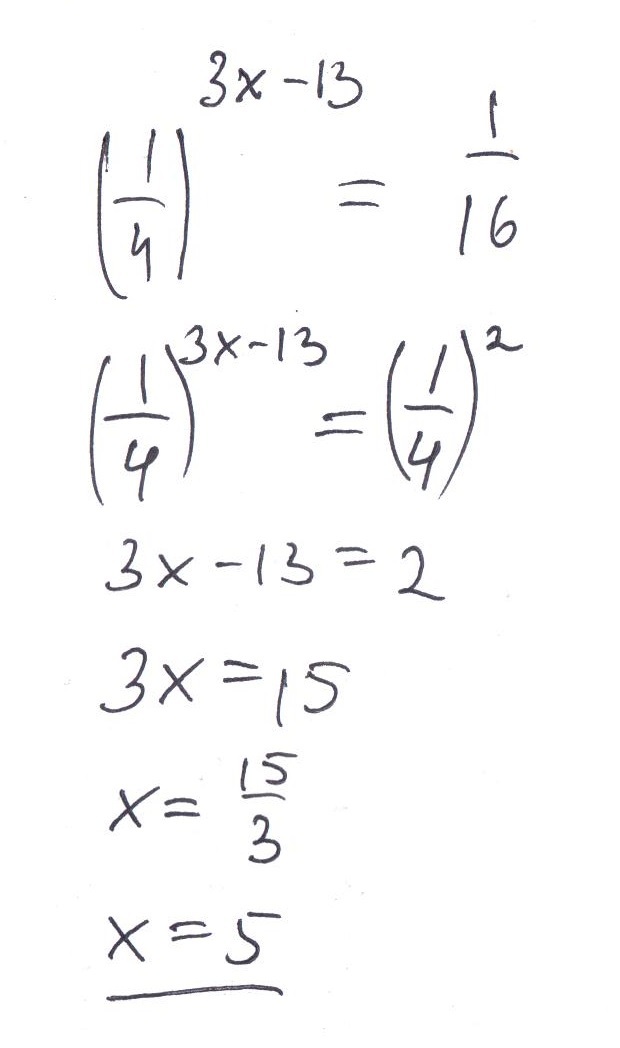 (1/4)^(3x-13) = 1/16
(1/4)^(3x-13) = (1/4)^2
3x-13=2
3x=15
x=15/3
x=5